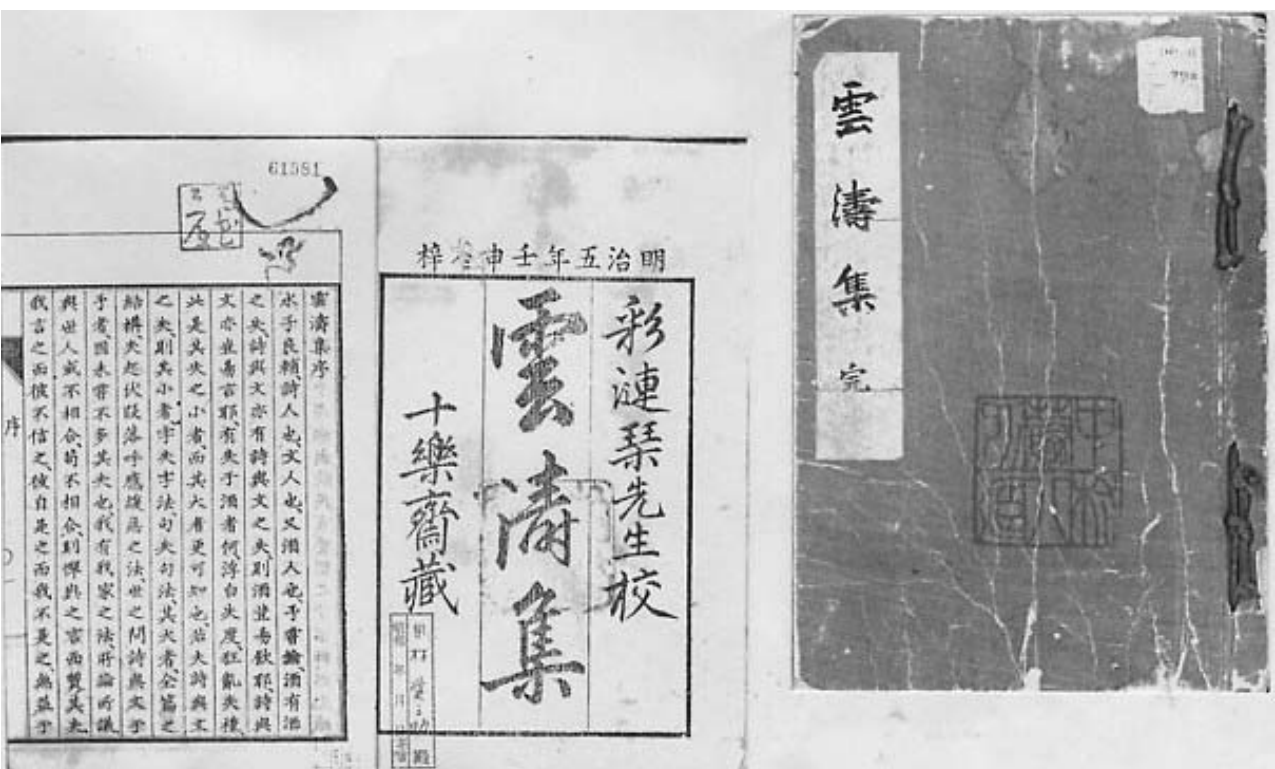 雲濤集 完
明治五年壬申梓
彩漣琹先生校
雲濤集
十樂齋藏
61581
雲濤集序
水子良輔、詩人也、文人也、又酒人也、予嘗論、酒有酒
之失、詩與文亦有詩與文之失、則酒豈易飲耶、詩與
文亦豈易言耶、有失于酒者何、浮白失度、狂亂失禮、
此是其失之小者、而其大者更可知也、若夫詩與文
之失、則其小者、字失字法、句失句法、其大者、全篇之
結構、失起伏段落呼應緩急之法、世之問詩與文于
予者、固未嘗不多其失也、我有我家之法、所論所議
與世人或不相合、苟不相合、則憚與之言而質其失、
我言之而彼不信之、彼自是之而我不是之、無益于
序